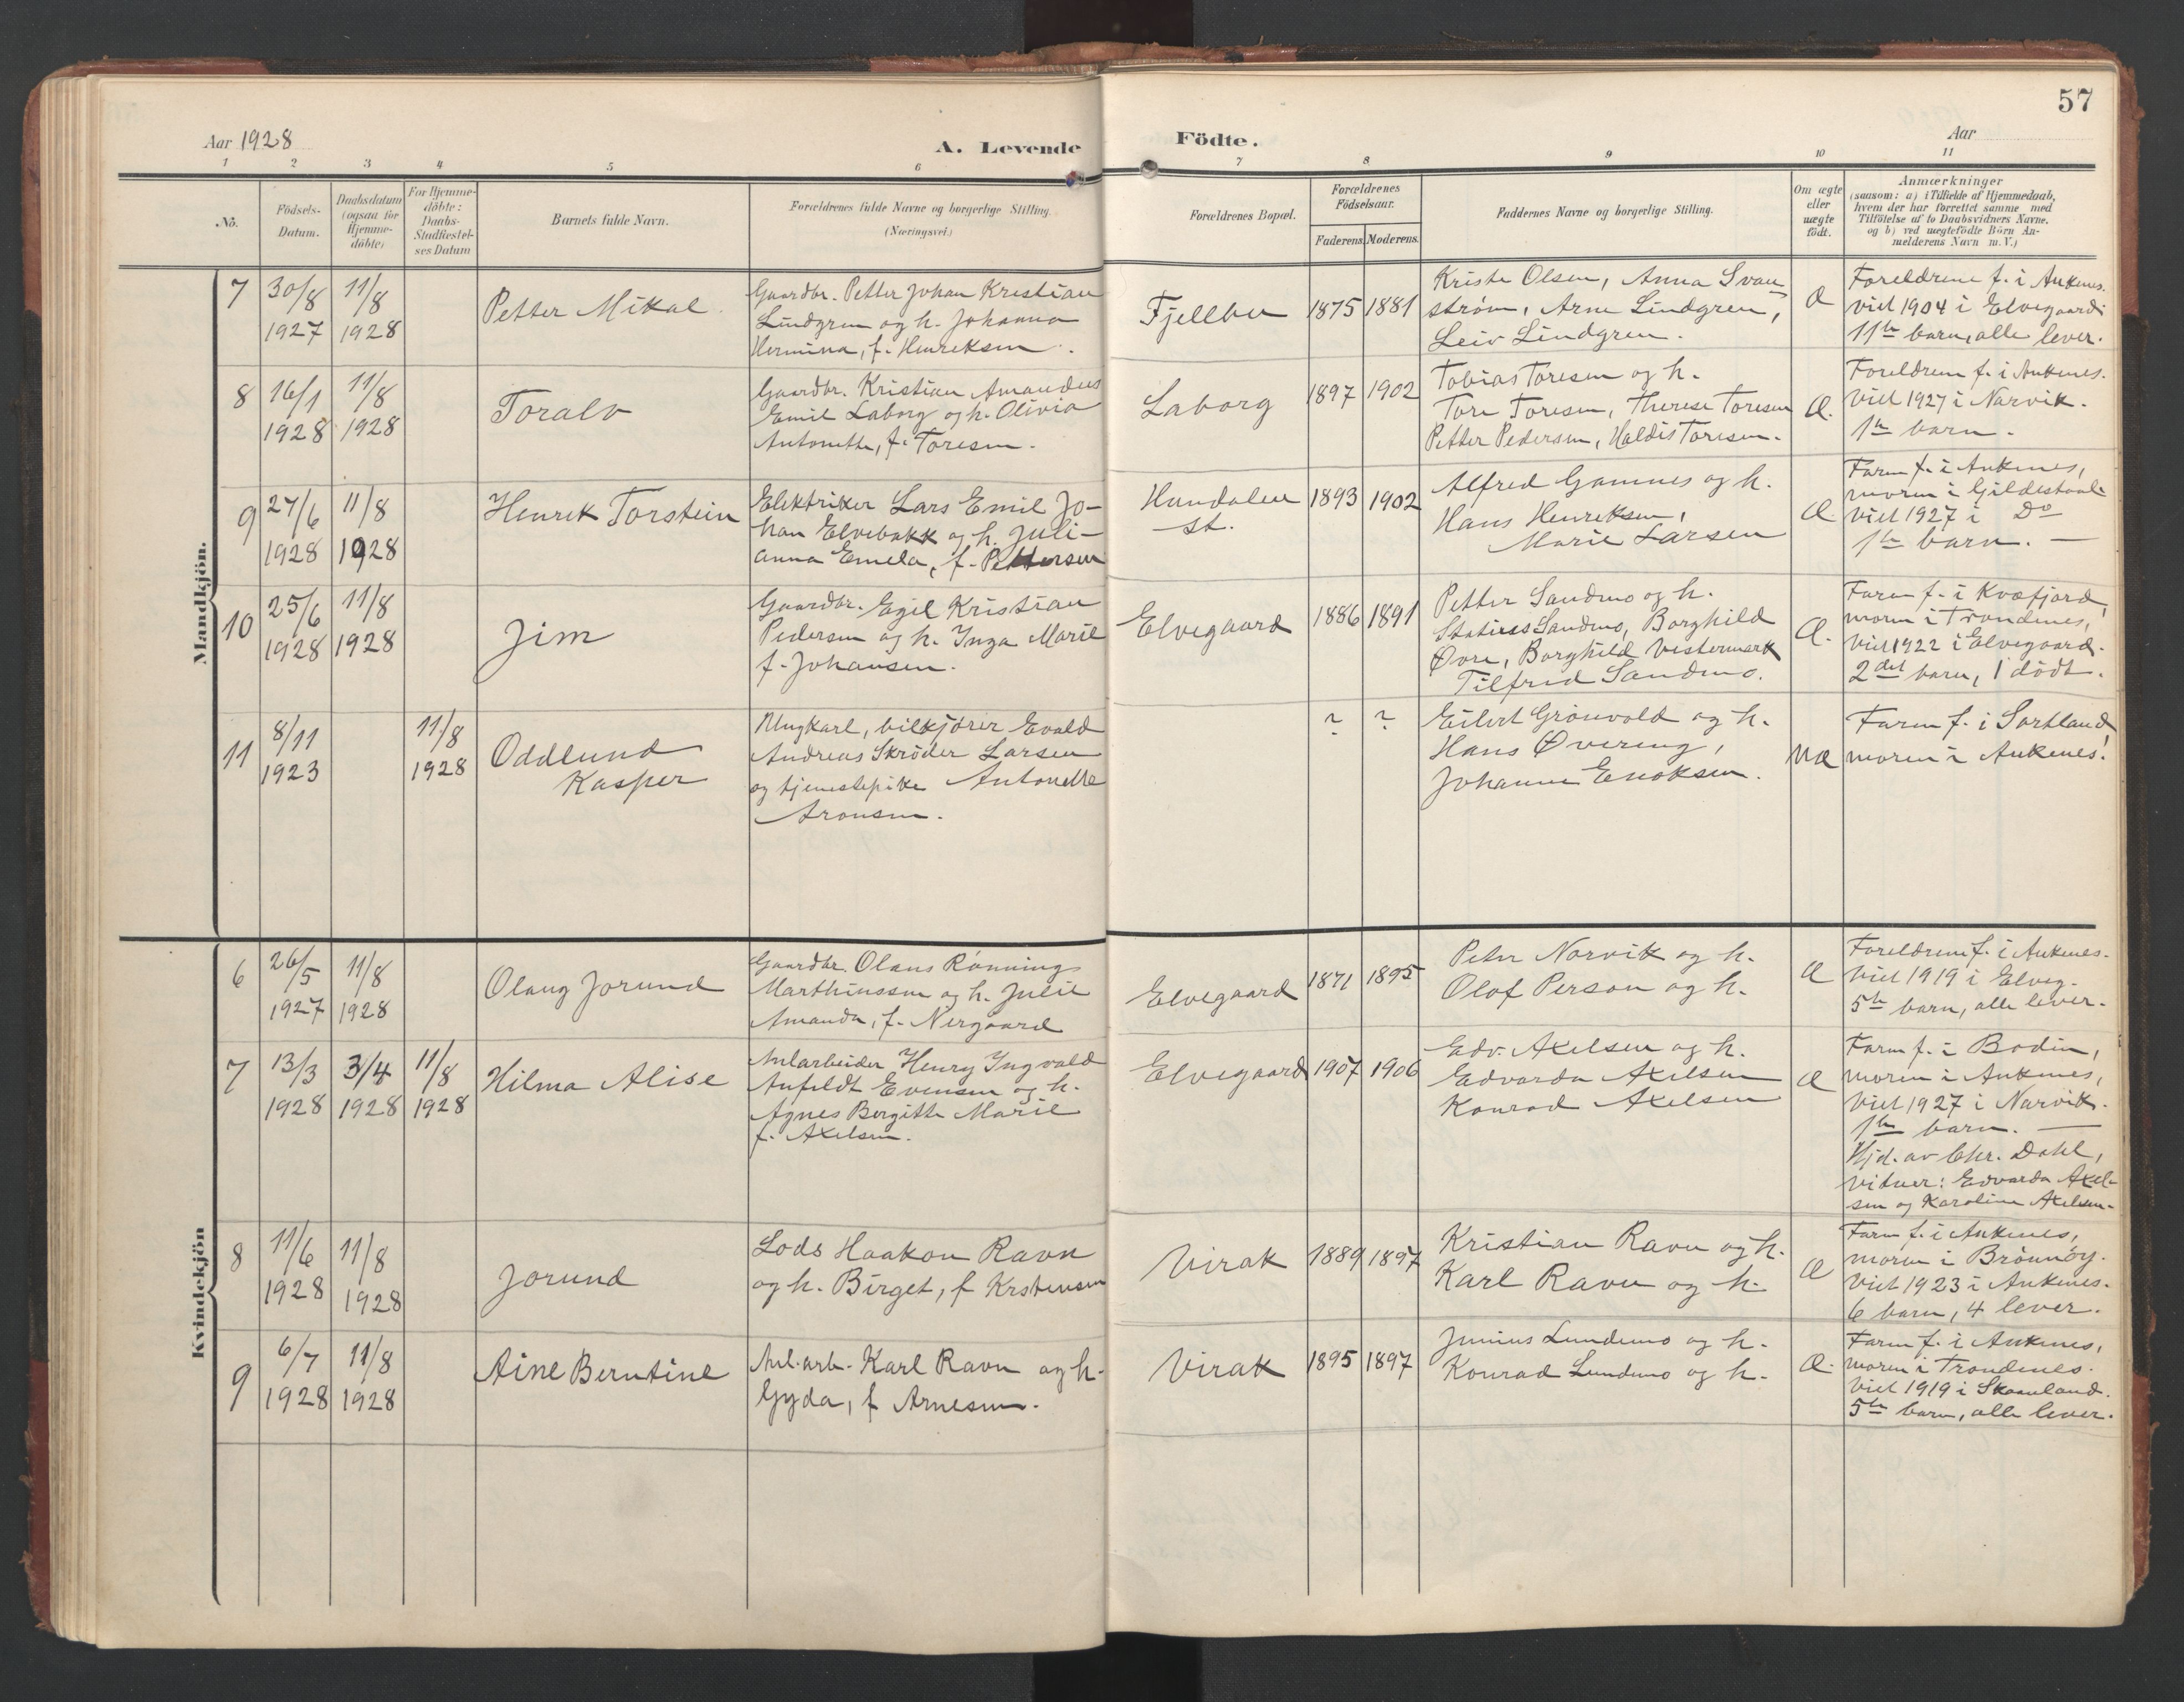 57
Aar 1928
A. Levende
Födte.
Aar
1 2 3 4 5 6 7 8 9 10 11
No.
Födsels-
Datum.
Daabsdatum
(ogsaa for
Hjemme-
döbte)
For Hjemme-
döbte:
Daabs-
Stadfæstel-
ses Datum
Barnets fulde Navn.
Forældrenes fulde Navne og borgerlige Stilling.
(Næringsvei)
Forældrenes Bopæl.
Forældrenes
Födselsaar.
Faderens. Moderens.
Faddernes Navne og borgerlige Stilling.
Om ægte
eller
uægte
födt.
Anmærkninger
(saasom: a) i Tilfælde af Hjemmedaab,
hvem der har forrettet samme med
Tilföielse af to Daabsvidners Navne.
og b) ved uægtefödte Börn An-
melderens Navn m. V.)
Mandkjön.
7
30/8
1927
11/8
1928
Petter Mikal
Gaardbr. Petter Johan Kristian
Lindgren og h. Johanna
Hermina, f. Henriksen.
Fjellbu
1875 1881
Kriste Olsen, Anna Svan
strøm, Arne Lindgren,
Leiv Lindgren.
Æ
Foreldrene f. i Ankenes.
viet 1904 i Elvegaard.
11te barn, alle lever.
8
16/1
1928
11/8
1928
Toralv
Gaardbr. Kristian Amandus
Emil Laborg og h. Olivia
Antonette, f. Toresen.
Laborg
1897 1902
Tobias Toresen og h.
Tore Toresen, Therese Toresen
Petter Pedersen, Haldis Toresen.
Æ.
Foreldrene f. i Ankenes.
viet 1927 i Narvik.
1te barn.
9
27/6
1928
11/8
1928
Henrik Torstein
Elektriker Lars Emil Jo-
han Elvebakk og h. Juli-
anna Emela, f. Pettersen
Hundalen
st.
1893 1902
Alfred Gamnes og h.
Hans Henriksen,
Marie Larsen
Æ.
Faren f. i Ankenes,
moren i Gildeskaal.
viet 1927 i Do
1te barn. —
10
25/6
1928
11/8
1928
Jim
Gaardbr. Egil Kristian
Pedersen og h. Inga Marie
f. Johansen.
Elvegaard
1886 1891
Petter Sandmo og h.
Sandmo, Borghild
Øvre, Borghild Vestermark
Tilfrid Sandmo.
Æ.
Faren f. i Kvæfjord,
moren i Trondenes,
viet 1922 i Elvegaard.
2det barn, 1 dödt.
11
8/11
1923
11/8
1928
Oddlund
Kasper
Ungkarl, bilkjører Evald
Andreas Skröder Larsen
og tjenestepike Antonette
Aronsen.
? ?
Eilert Grönvold og h.
Hans Øvering,
Johanne Enoksen.
UÆ
Faren f. i Sortland,
moren i Ankenes.
Kvindekjön
6
26/5
1927
11/8
1928
Olaug Jorund
Gaardbr. Olaus Rönnings
Marthinussen og h. Julie
Amanda, f. Nergaard
Elvegaard
1871 1895
Peter Norvik og h.
Olof Person og h.
Æ
Foreldrene f. i Ankenes.
viet 1919 i Elveg.
5te barn, alle lever.
7
13/3
1928
3/4
1928
11/8
1928
Hilma Alise
Anlarbeider Henry Ingvald
Anfeldt Evensen og h.
Agnes Bergitte Marie
f. Axelsen.
Elvegaard
1907 1906
Edv. Axelsen og h.
Edvarda Axelsen
Konrad Axelsen
Æ
Faren f. i Bodin,
moren i Ankenes,
viet 1927 i Narvik.
1te barn. —
Hjd. av Chr. Dahl,
vidner: Edvarda Axel-
sen og Karoline Axelsen.
8
11/6
1928
11/8
1928
Jorund
Lods Haakon Ravn
og h. Birget, f Krstensen
Virak
1889 1897
Kristian Ravn og h.
Karl Ravn og h.
Æ
Faren f. i Ankenes,
moren i Brönnöy.
viet 1923 i Ankenes.
6 barn, 4 lever.
9
6/7
1928
11/8
1928
Aine Berntine
Anl. arb. Karl Ravn og h.
Gyda, f Arnesen.
Virak
1895 1897
Junius Lundmo og h.
Konrad Lundmo og h.
Æ.
Faren f. i Ankenes,
moren i Trondenes.
viet 1919 i Skaanland.
5te barn, alle lever.